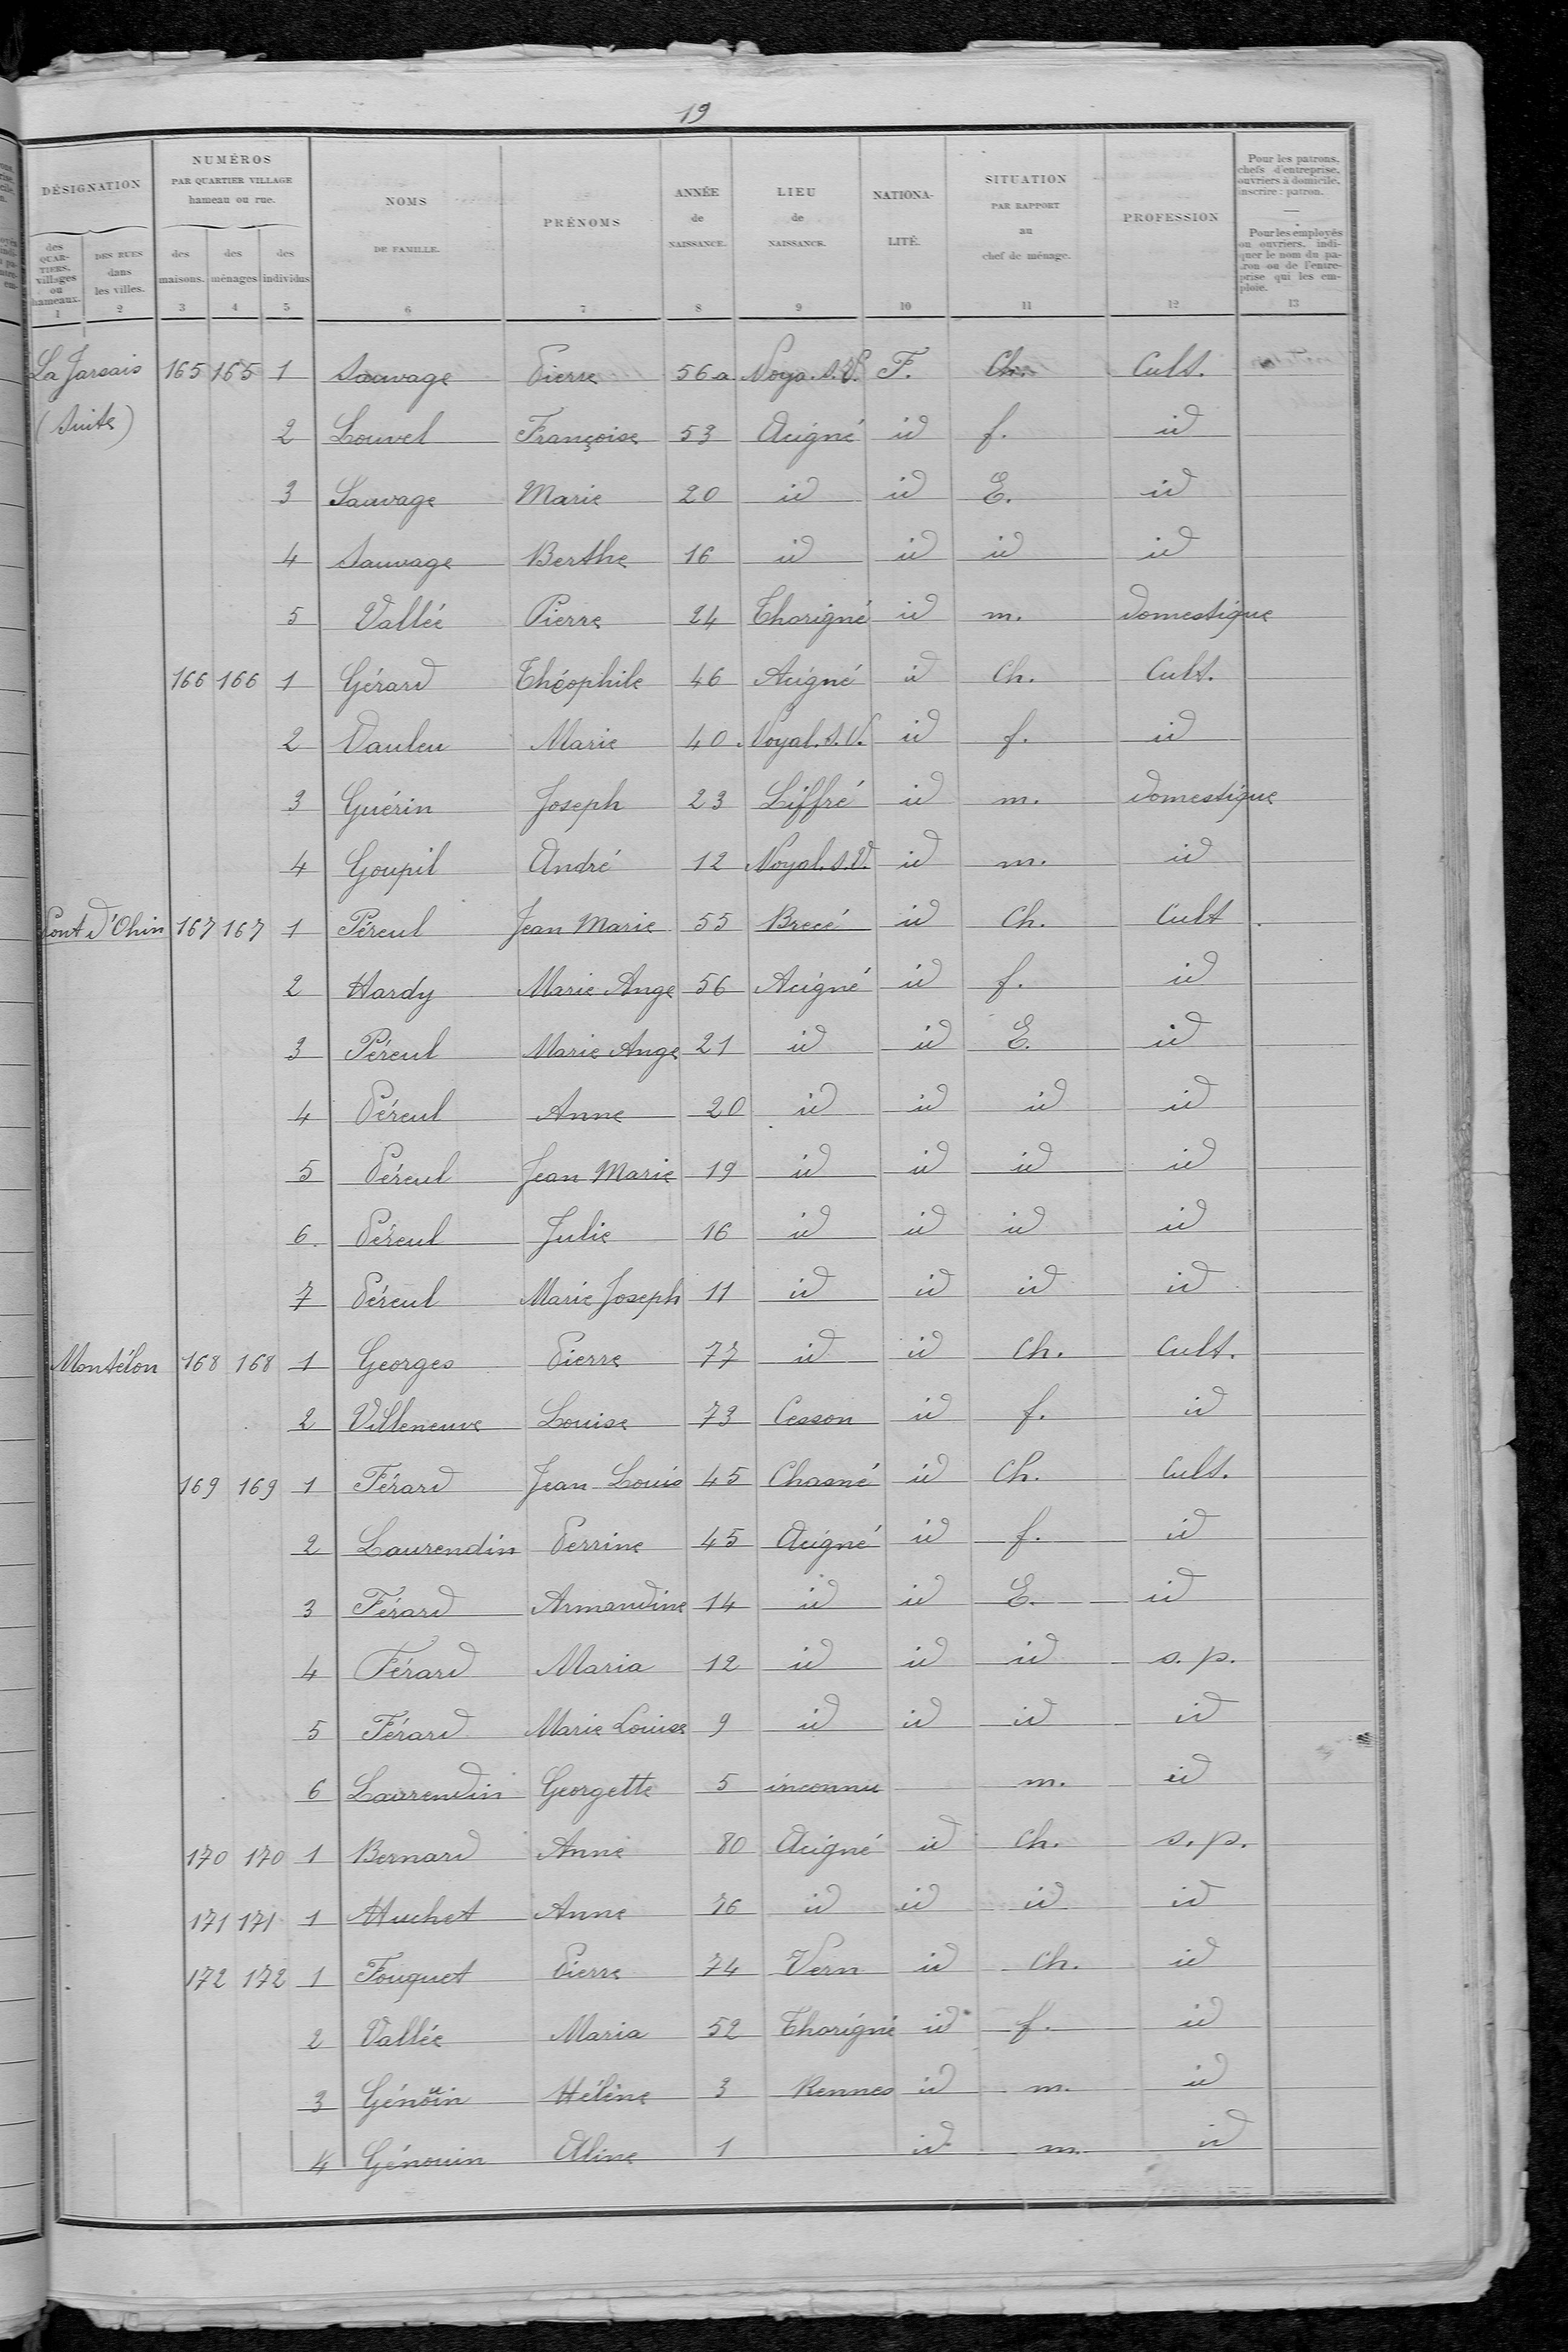 19
DÉSIGNATION
NUMÉROS
PAR QUARTIER VILLAGE
hameau ou rue.
NOMS
DE FAMILLE.
PRÉNOMS
ANNÉE
de
NAISSANCE.
LIEU
de
NAISSANCE.
NATIONA-
LITÉ.
SITUATION
PAR RAPPORT
au
chef de ménage.
PROFESSION
Pour les patrons,
chefs d'entreprise,
ouvriers à domicile,
inscrire : patron.
—
Pour les employés
ou ouvriers, indi-
quer le nom du pa-
tron ou de l'entre-
prise qui les em-
ploie.
des
QUAR-
TIERS,
villages
ou
hameaux.
DES RUES
dans
les villes.
des
maisons.
des
ménages
des
individus
1 2 3 4 5 6 7 8 9 10 11 12 13
La Jarsais 165 165 1 Sauvage Pierre 56 a Noya. s. V. F. Ch. Cult.
(suite) 2 Louvel Françoise 53 Acigné id f. id
3 Sauvage Marie 20 id id E. id
4 Sauvage Berthe 16 id id id id
5 Vallée Pierre 24 Thorigné id m. domestique
166 166 1 Gérard Théophile 46 Acigné id Ch. Cult.
2 Dauleu Marie 40. Noyal. s. V. id f. id
3 Guérin Joseph 23 Liffré id m. domestique
4 Goupil André 12 Noyal. s. V. id m. id
Pont d'Ohin 167 167 1 Péreul Jean Marie 55 Brecé id Ch. Cult
2 Hardy Marie Ange 56 Acigné id f. id
3 Péreul Marie Ange 21 id id E. id
4 Péreul Anne 20 id id id id
5 Péreul Jean Marie 19 id id id id
6. Péreul Julie 16 id id id id
7 Péreul Marie Joseph 11 id id id id
Montélon 168 168 1 Georges Pierre 77 id id Ch. Cult.
2 Villeneuve Louise 73 Cesson id f. id
169 169 1 Férard Jean-Louis 45 Chasné id Ch. Cult.
2 Laurendin Perrine 45 Acigné id f. id
3 Férard Armandine 14 id id E. id
4 Férard Maria 12 id id id s. p.
5 Férard Marie Louise 9 id id id id
6 Laurendin Georgette 5 inconnu m. id
170 170 1 Bernard Anne 80 Acigné id Ch. s. p.
171 171 1 Huchet Anne 76 id id id id
172 172 1 Fouquet Pierre 74 Vern id Ch. id
2 Vallée Maria 52 Thorigné id f. id
3 Génouin Hélène 3 Rennes id m. id
4 Génouin Aline 1 id m. id